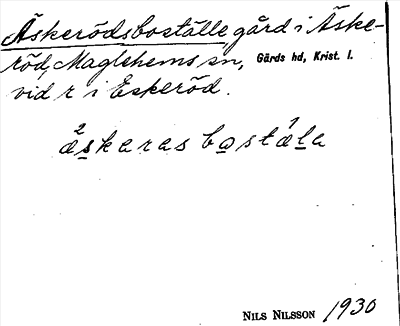 Äskerödsboställe gård i Äske-
röd, Maglehems sn, Gärds hd, Krist. l.
vid r i Eskeröd.
2 1
æskaras bostæla
NILS NILSSON 1930